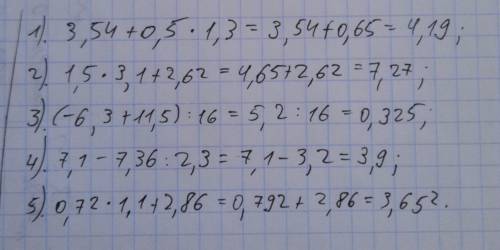 1). 3,54+0,5·1,3=3,54+0,65=4,19;
2). 1,5·3,1+2,62=4,65+2,62=7,27;
3). (-6,3+11,5):16=5,2:16=0,325;
4). 7,1-7,36:2,3=7,1-3,2=3,9;
5). 0,72·1,1+2,86=0,792+2,86=3,652.